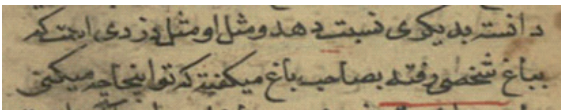 دانسته بدیکری نسبت دهد و مثل او مثل دزدی است که
بباغ شخصی رفته بصاحب باغ میکفته که تو اینجا چه میکنی